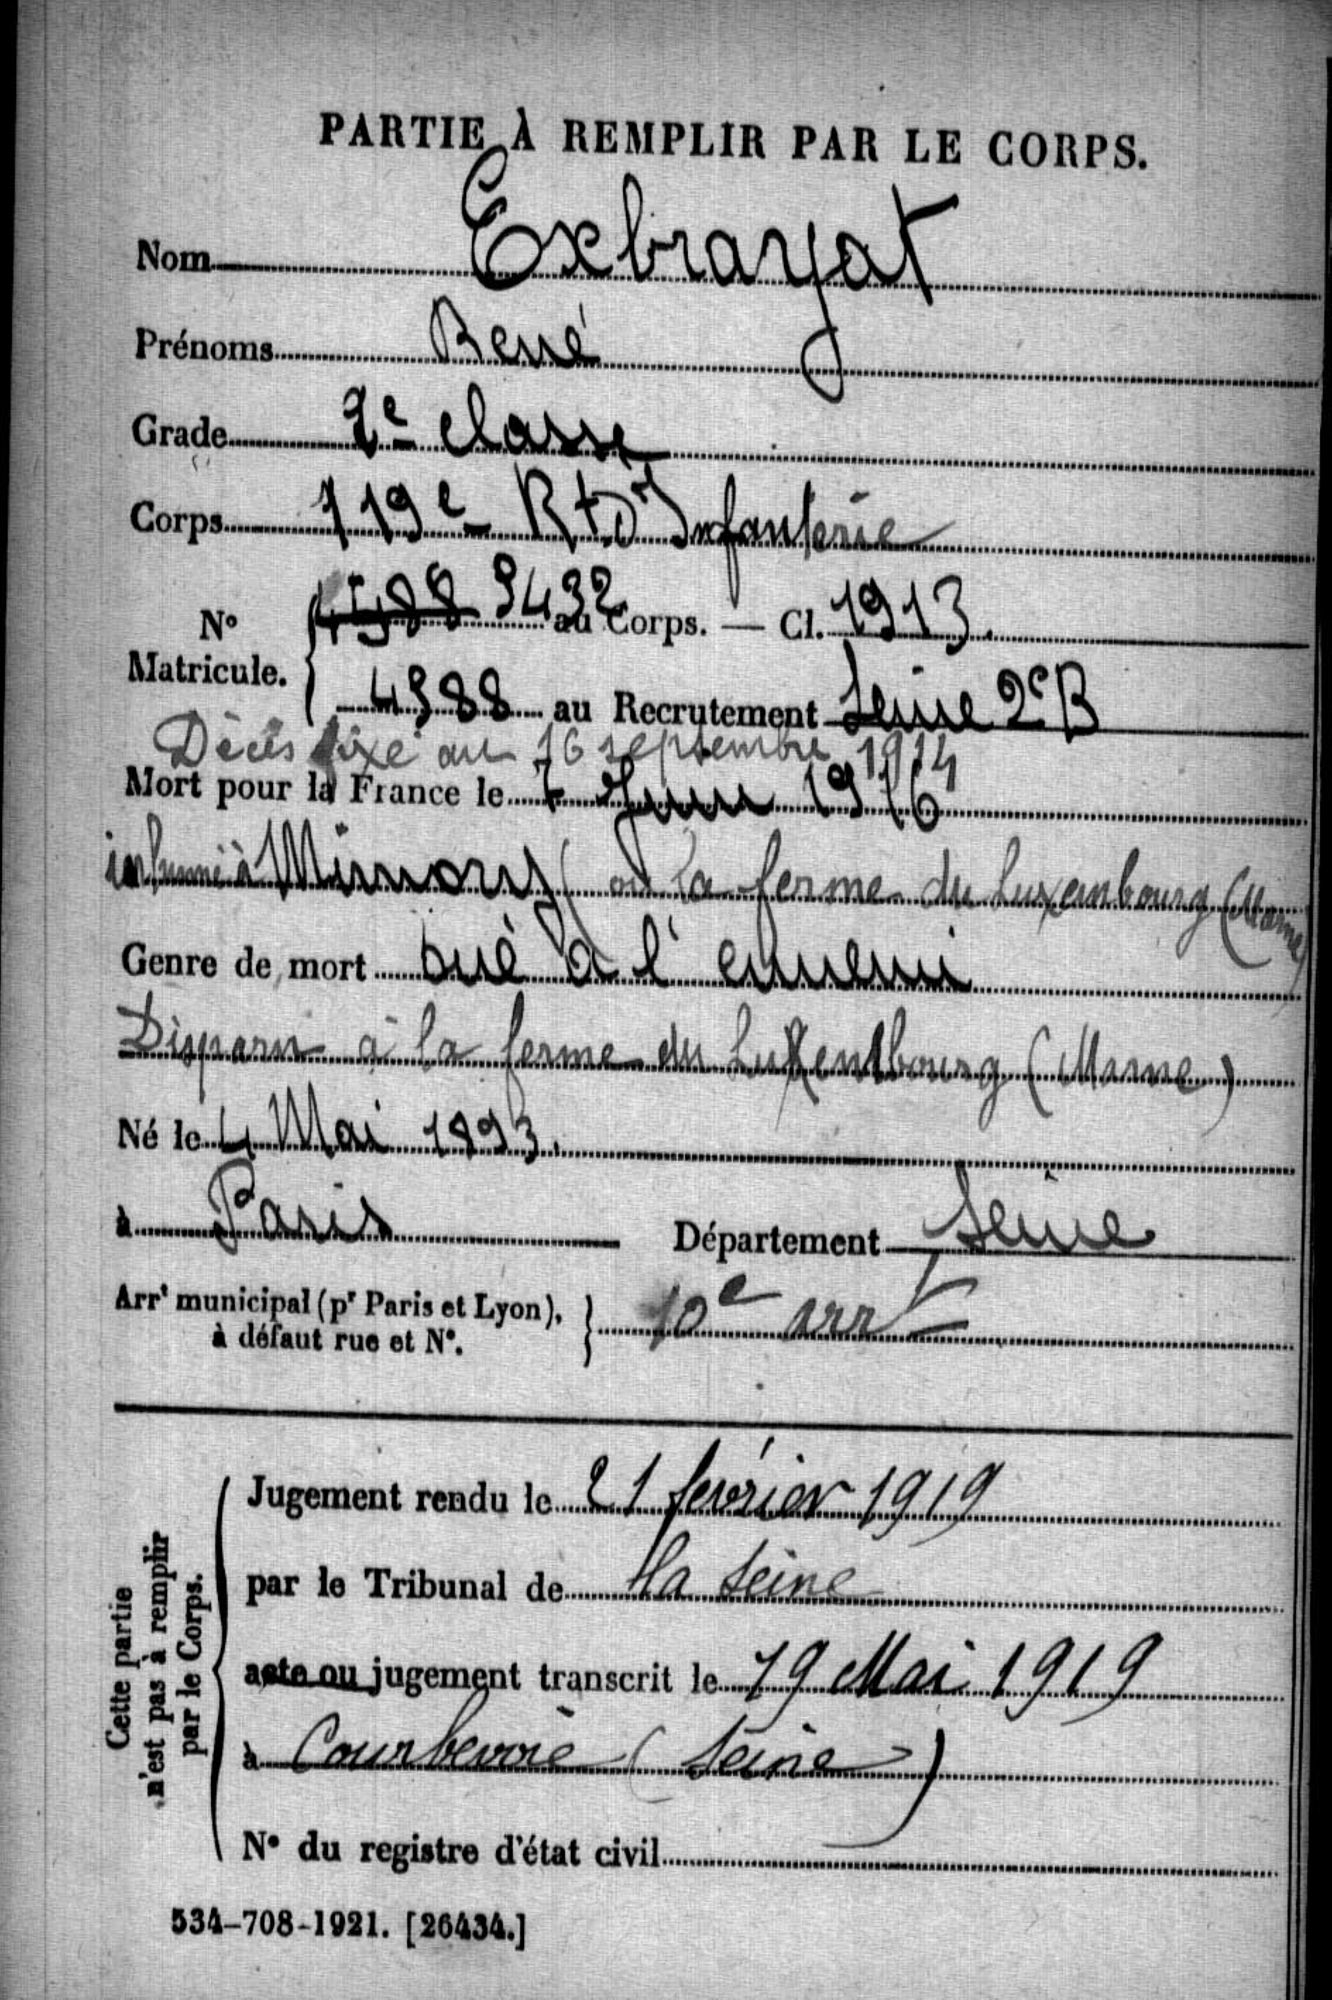 PARTIE À REMPLIR PAR LE CORPS.
Nom Exbrayat
Prénoms René
Grade 2e classe
Corps 119e Rt D'Infanterie
N° Matricule. 4988 9432 au Corps. — Cl. 1913.
4988 au Recrutement Seine 2e B
Décès fixé au 16 septembre 1914
Mort pour la France le 7 Juin 1916
inhumé à (ou la ferme du Luxembourg (Marne)
Genre de mort tué à l'ennemi
Disparu à la ferme du Luxembourg (Marne)
Né le 4 Mai 1893.
à Paris Département Seine
Arrt municipal (pr Paris et Lyon), à défaut rue et N°. 10e arrt
Cette partie n'est pas à remplir par le Corps.
Jugement rendu le 21 février 1919
par le Tribunal de la Seine
acte ou jugement transcrit le 19 Mai 1919
à Courbevoie (Seine)
N° du registre d'état civil
534-708-1921. [26434.]